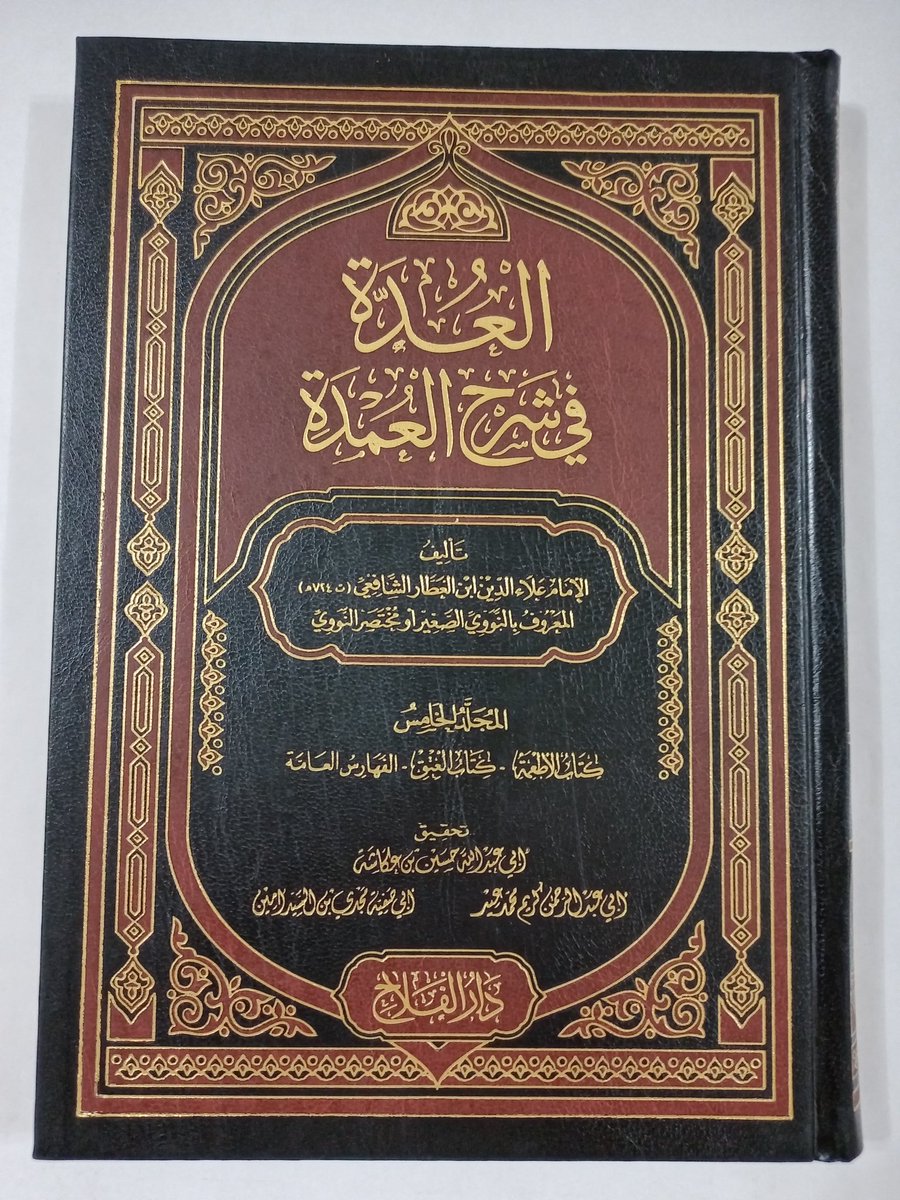 العُدَّة
في شرح العُمْدَة
تَأليفُ
الإمَام عَلَاء الدِّين ابن العَطّار الشَّافِعي (ت ٧٢٤هـ)
المَعْرُوفُ بِالنَّوَوِيّ الصَّغِير أَو مُخْتَصَر النَّوَوِيّ
المُجَلَّدُ الخَامِسُ
كتَابُ الأَطْعِمَة - كتَابُ العِتْقِ - الفَهَارِسُ العَامَة
تحقيق
أبي عبد الله حسين بن عكاشة
أبي عبد الرحمن كريم محمد عيد أبي صفية مجدي بن السيد أمين
دَارُ الفَلَاحِ